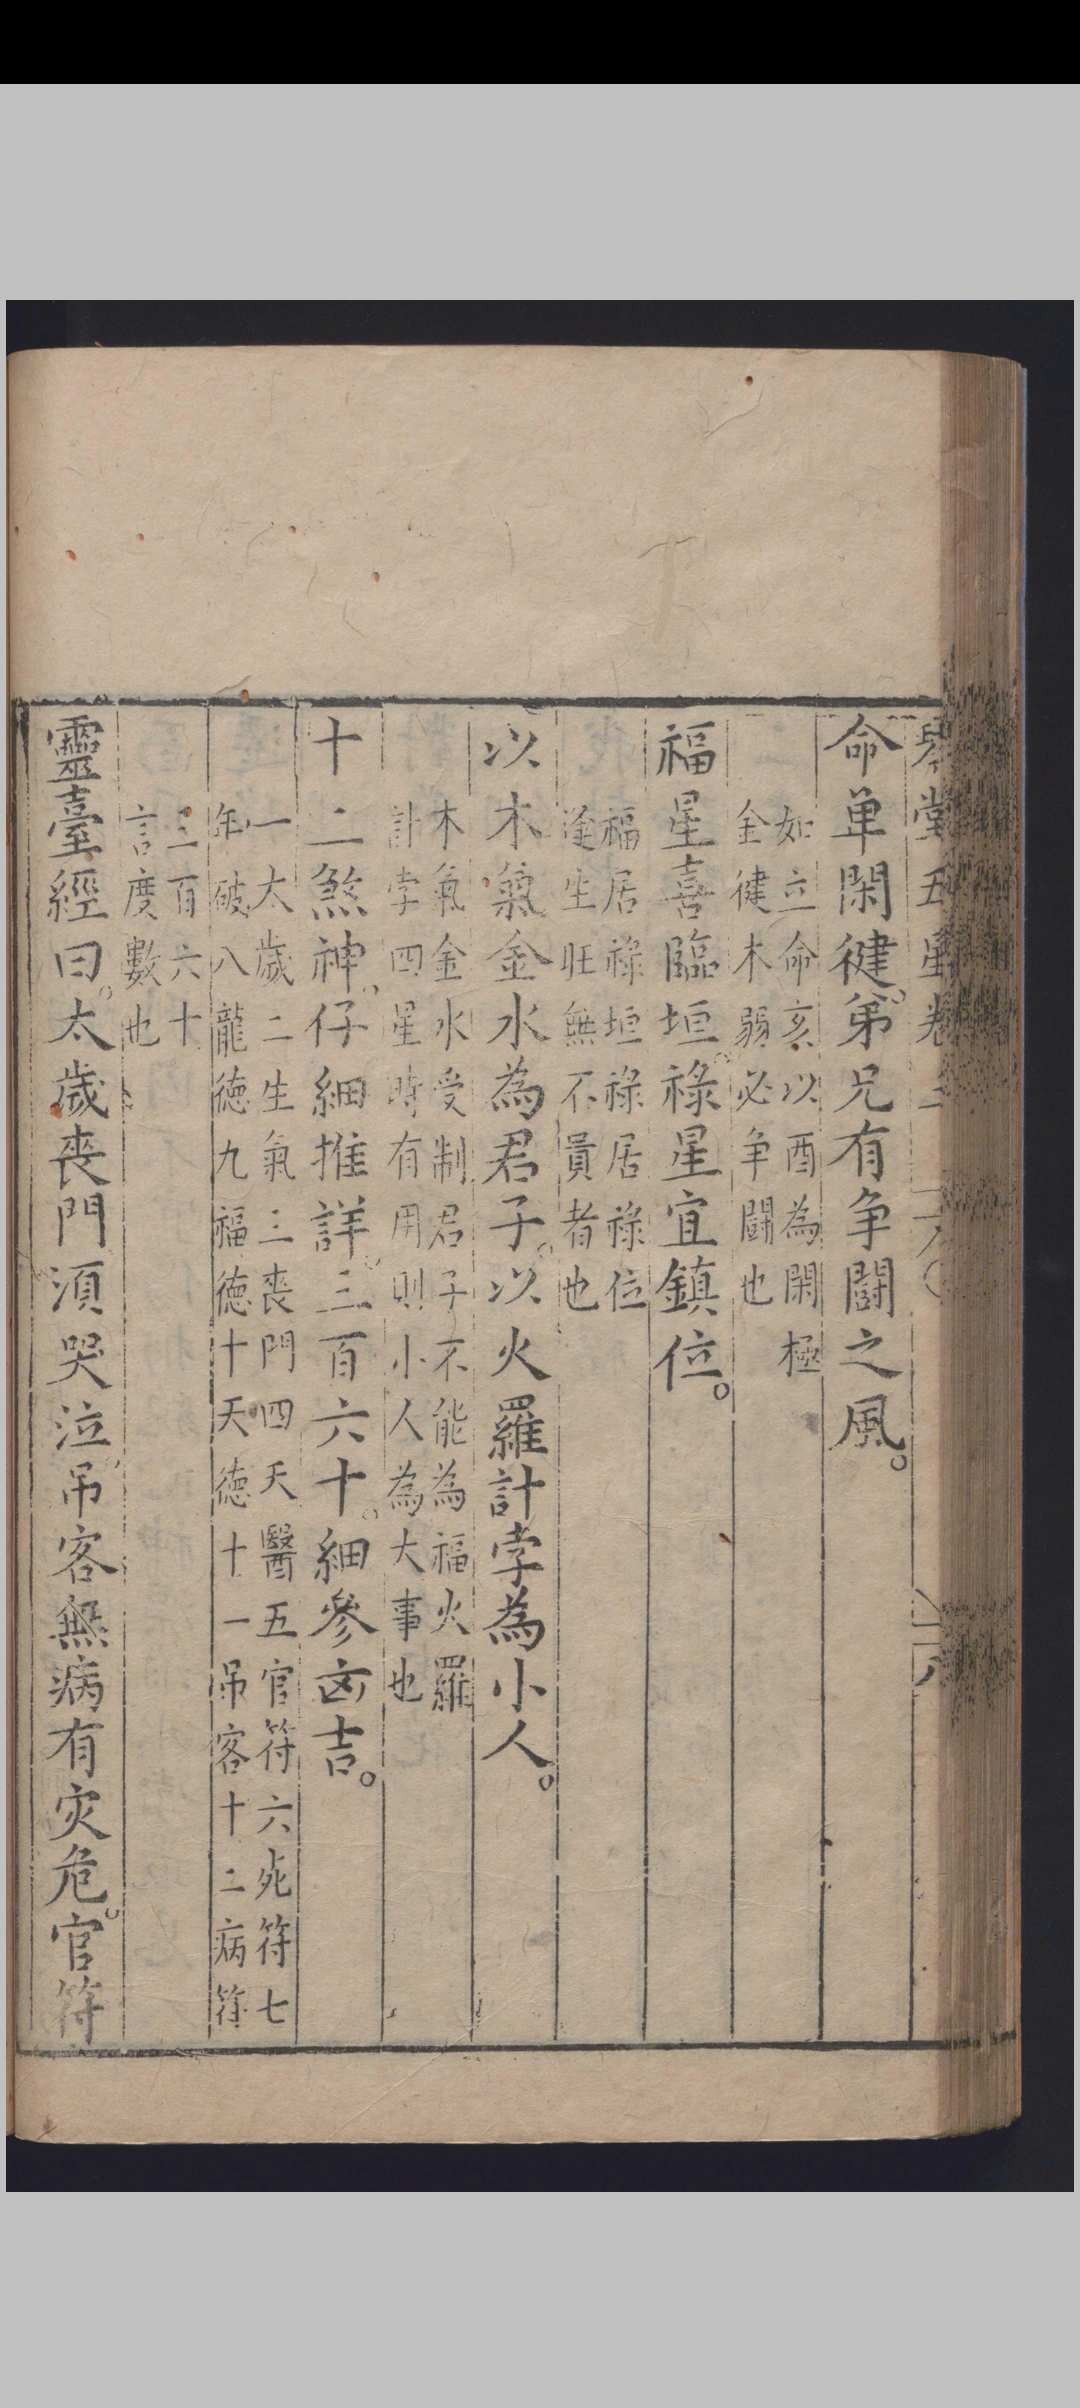 琴堂五星卷二
二八
命单閑健弟兄有争鬪之風
如立命亥以酉為閑極
金健木弱必争鬪也
福星喜臨垣祿星宜鎮位
福居祿垣祿居祿位
逢生旺無不貴者也
以木氣金水為君子以火羅計孛為小人
木氣金水受制君子不能為福火羅
計孛四星時有用則小人為大事也
十二煞神仔細推詳三百六十細參凶吉
一太歲二生氣三喪門四天醫五官符六死符七
年破八龍德九福德十天德十一吊客十二病符
三百六十
言度數也
靈臺經曰太歲喪門湏哭泣吊客無病有灾危官符